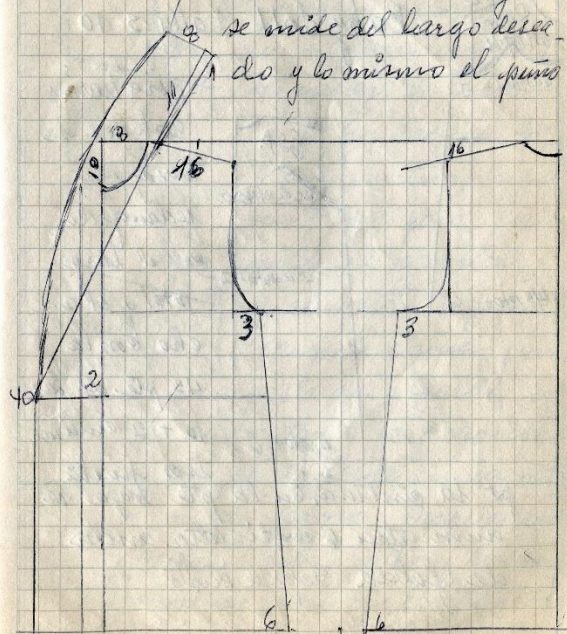 8 se mide del largo desea-
1 do y lo mismo el puño
11
8
10
16
16
3
3
2
40
6
6